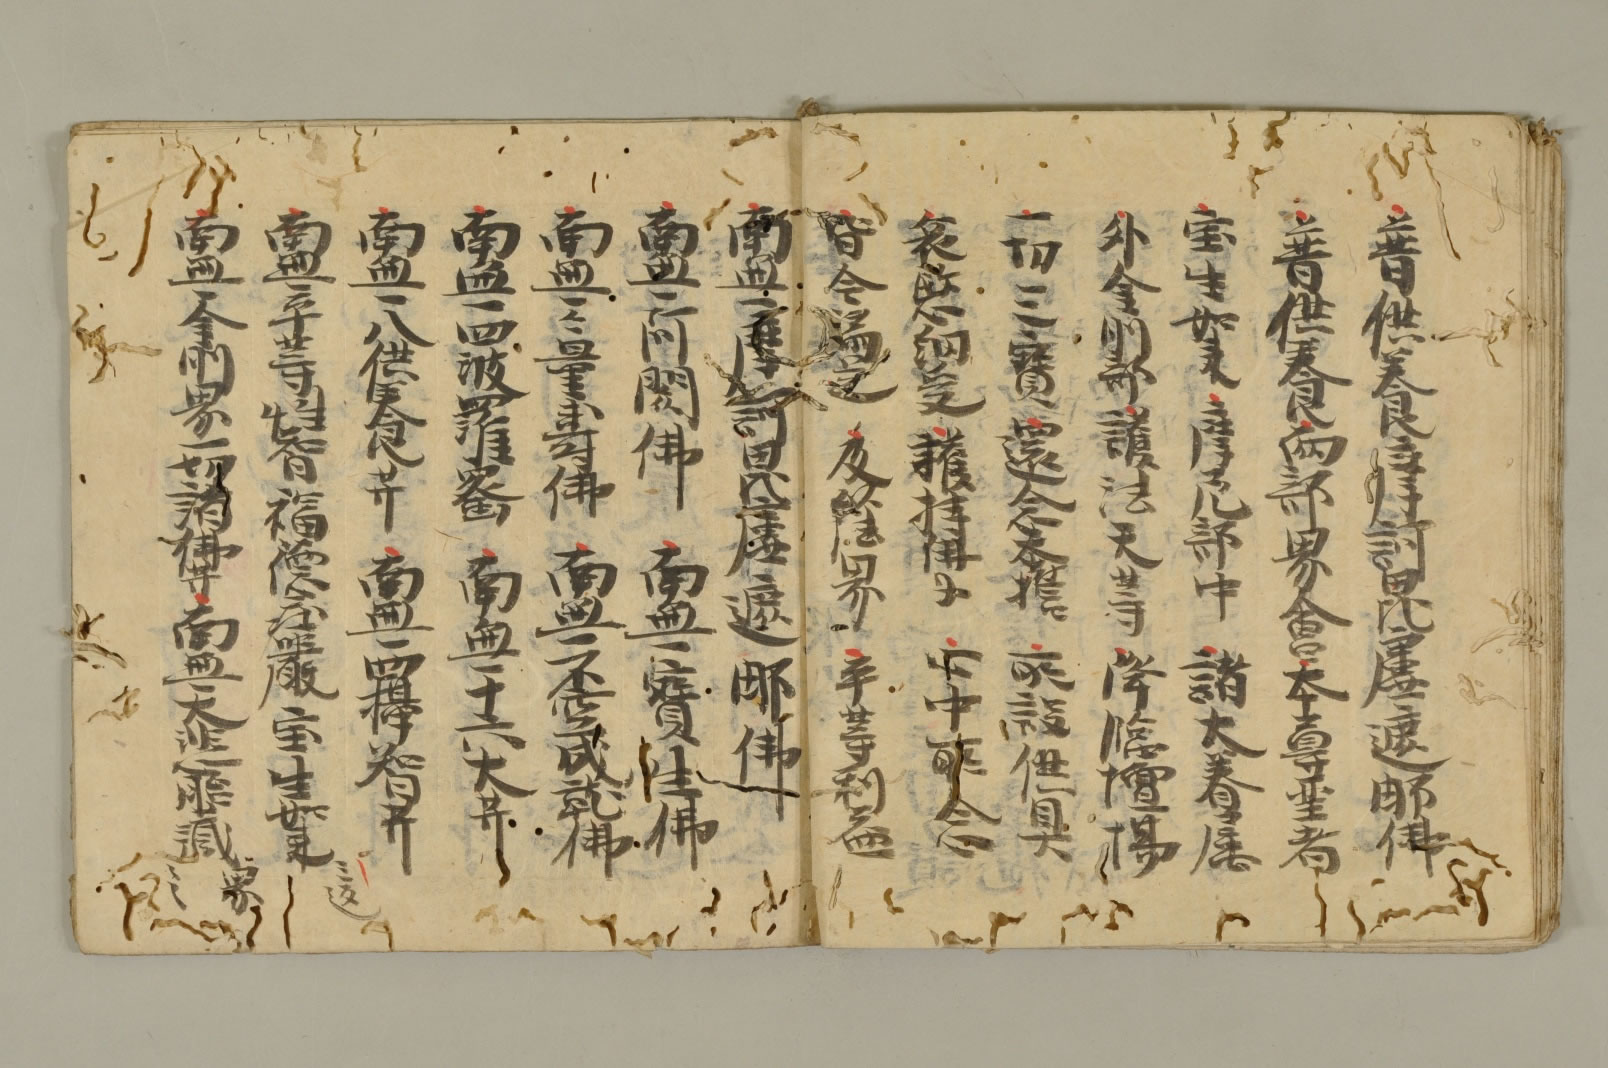 普供養摩訶毘盧遮那佛
普供養兩部界會本尊聖者
宝生如来摩尼部中諸大眷属
外金剛部護法天等降臨壇場
一切三寶還念本誓所設供具
哀愍納受護持佛子心中所念
皆令満足及以法界平等利益
南無一摩訶毘盧遮那佛
南無一阿閦佛南無一寶生佛
南無一無量壽佛南無一不空成就佛
南無一四波羅蜜南無一十六大𦬇
南無一八供養𦬇南無一四攝智𦬇
南無一平等性智福德庄嚴宝生如来三返
南無一金剛界一切諸佛𦬇南無一大悲胎蔵界